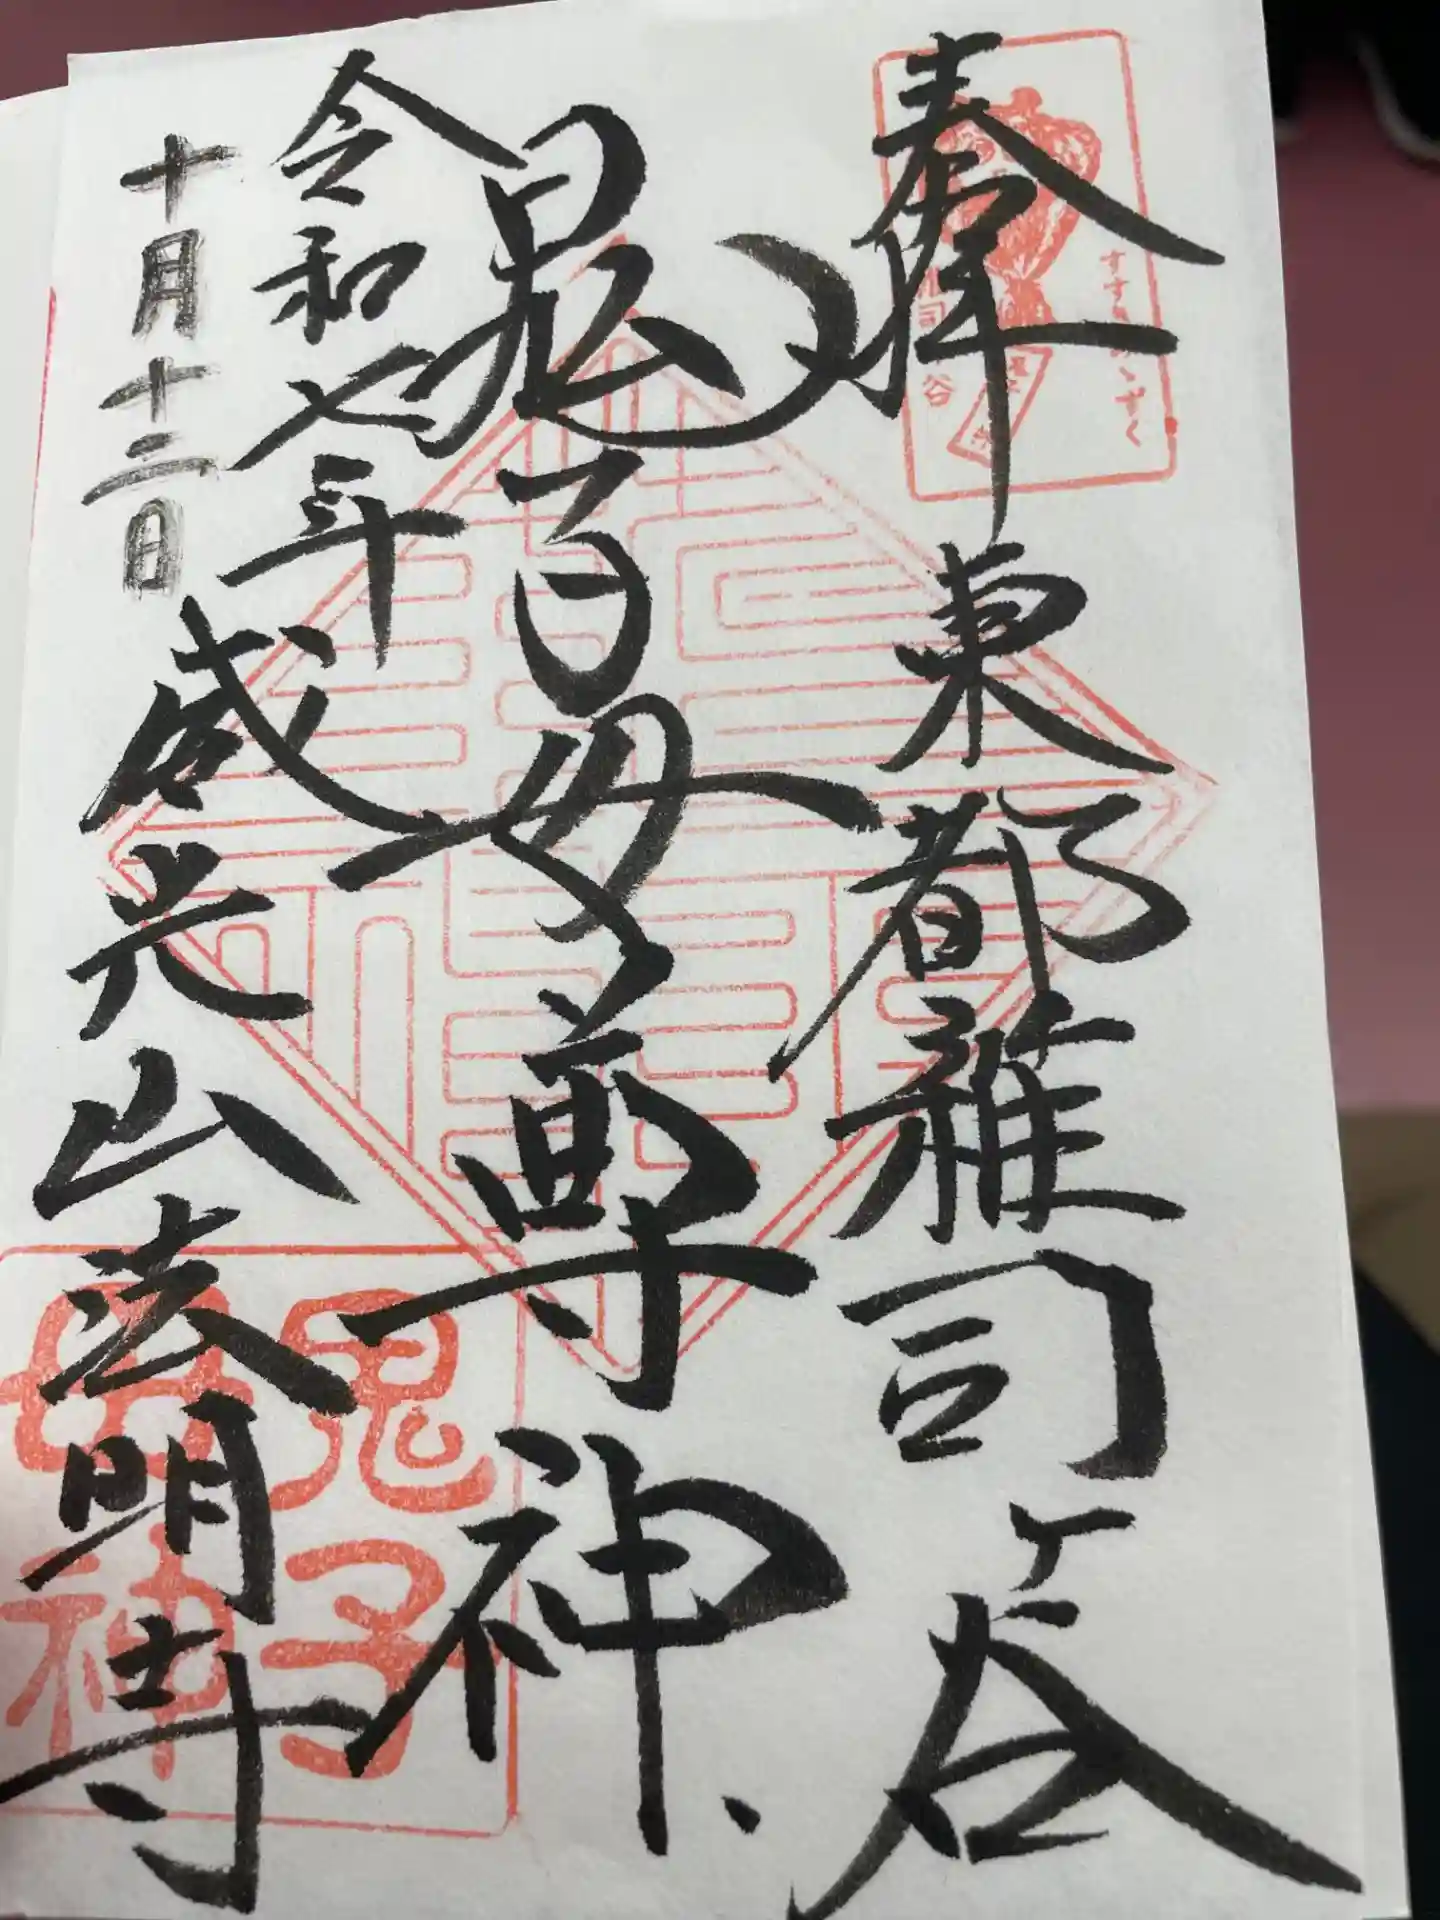 奉拝
東都雑司ヶ谷
鬼子母尊神
令和七年
十月十二日
威光山法明寺
すすきみみずく
鬼子
母神